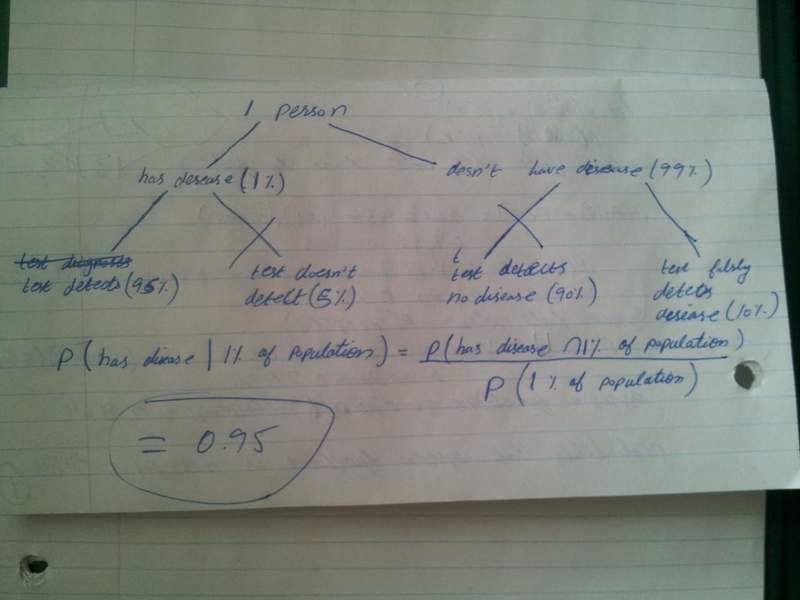 1 person
has desease (1%)
desn't have disease (99%)
test diagnoses
test detects (95%)
test doesn't
detect (5%)
t
test detects
no disease (90%)
test falsly
detects
disease (10%)
P (has disease | 1% of population) = P(has disease ∩ 1% of population)
P (1% of population)
= 0.95